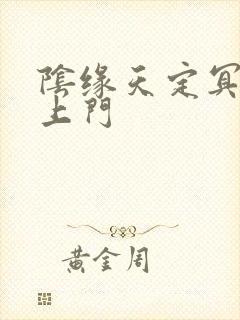 陰缘天定冥
上門
黄金周